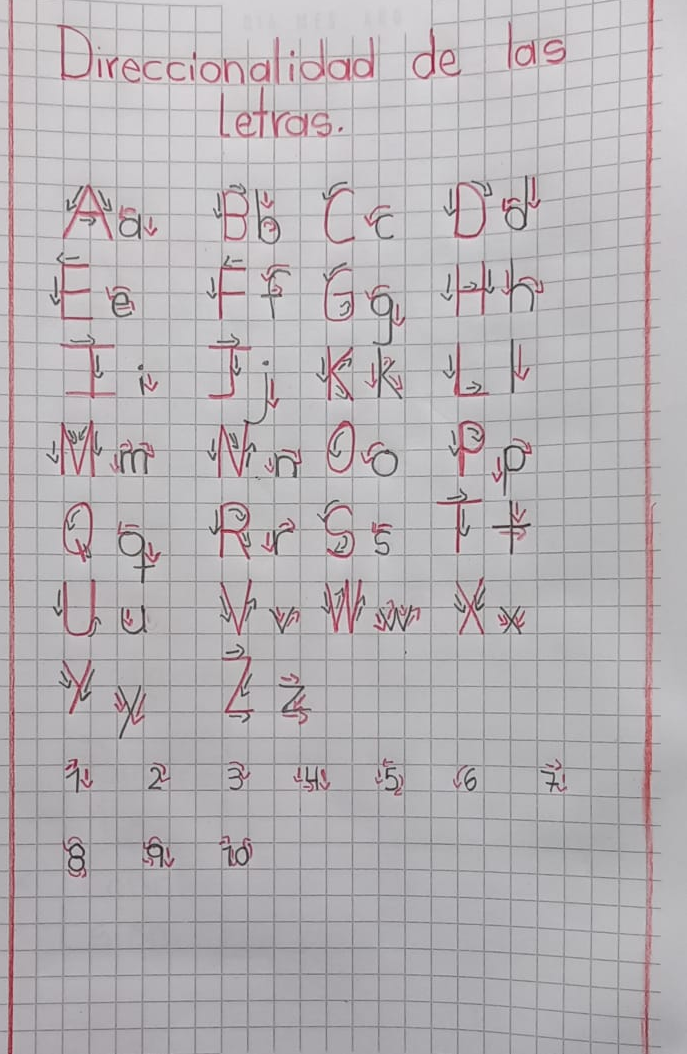 Direccionalidad de las
Letras.
A a B b C c D d
E e F f G g H h
I i J j K k L l
M m N n O o P p
Q q R r S s T t
U u V v W w X x
Y y Z z
1 2 3 4 5 6 7
8 9 10